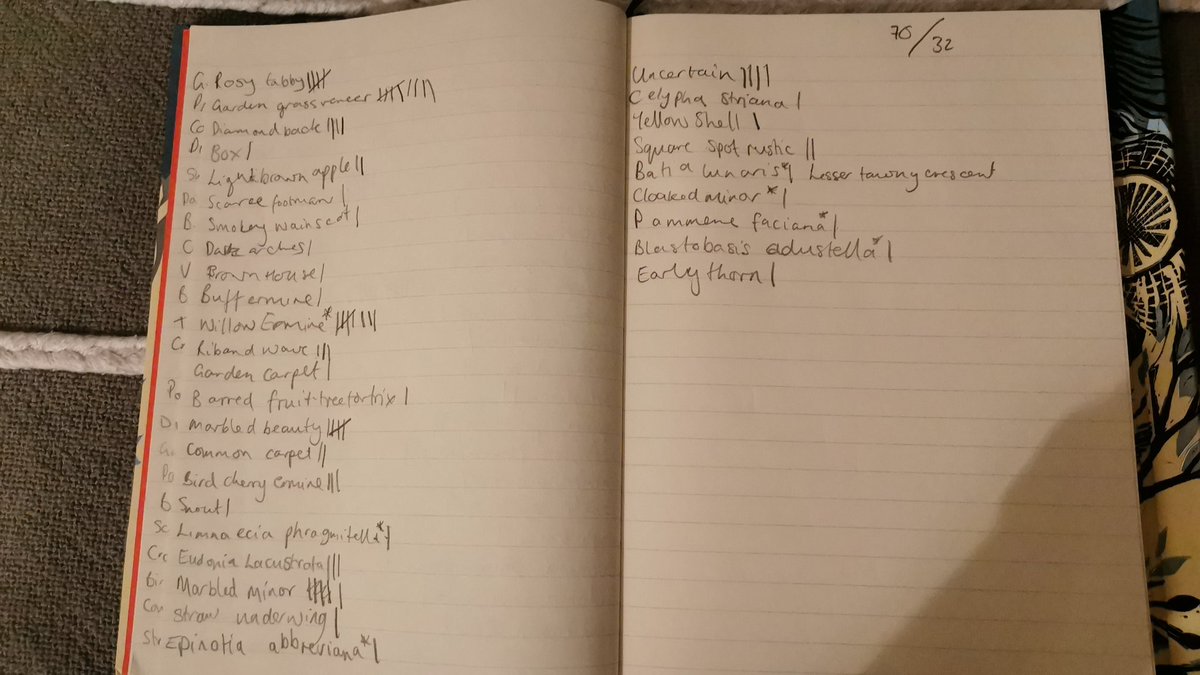 G. Rosy tabby 𝍸
P, Garden grassveneer 𝍸 ||||
Co Diamondback ||||
D, Box |
Lightbrown apple ||
Scarce footman |
B. Smokey wainscot |
C Dark arches |
V Brown House |
B Buff ermine |
+ Willow Ermine* 𝍸 |||
Co Riband wave |||
Garden carpet |
Po Barred fruit-treetortrix |
D, Marbled beauty 𝍸
Common carpet ||
Po Bird cherry ermine |||
B Snout |
Sc Limnaecia phragmitella* |
Eudonia Lacustrata |||
Marbled minor 𝍸 |
straw underwing |
Epinotia abbreviana* |
70/32
Uncertain ||||
Celypha striana |
Yellow Shell |
Square spot rustic ||
Batia lunaris* | Lesser tawny crescent
Cloaked minor* |
Pammene faciana* |
Blastobasis adustella* |
Early thorn |